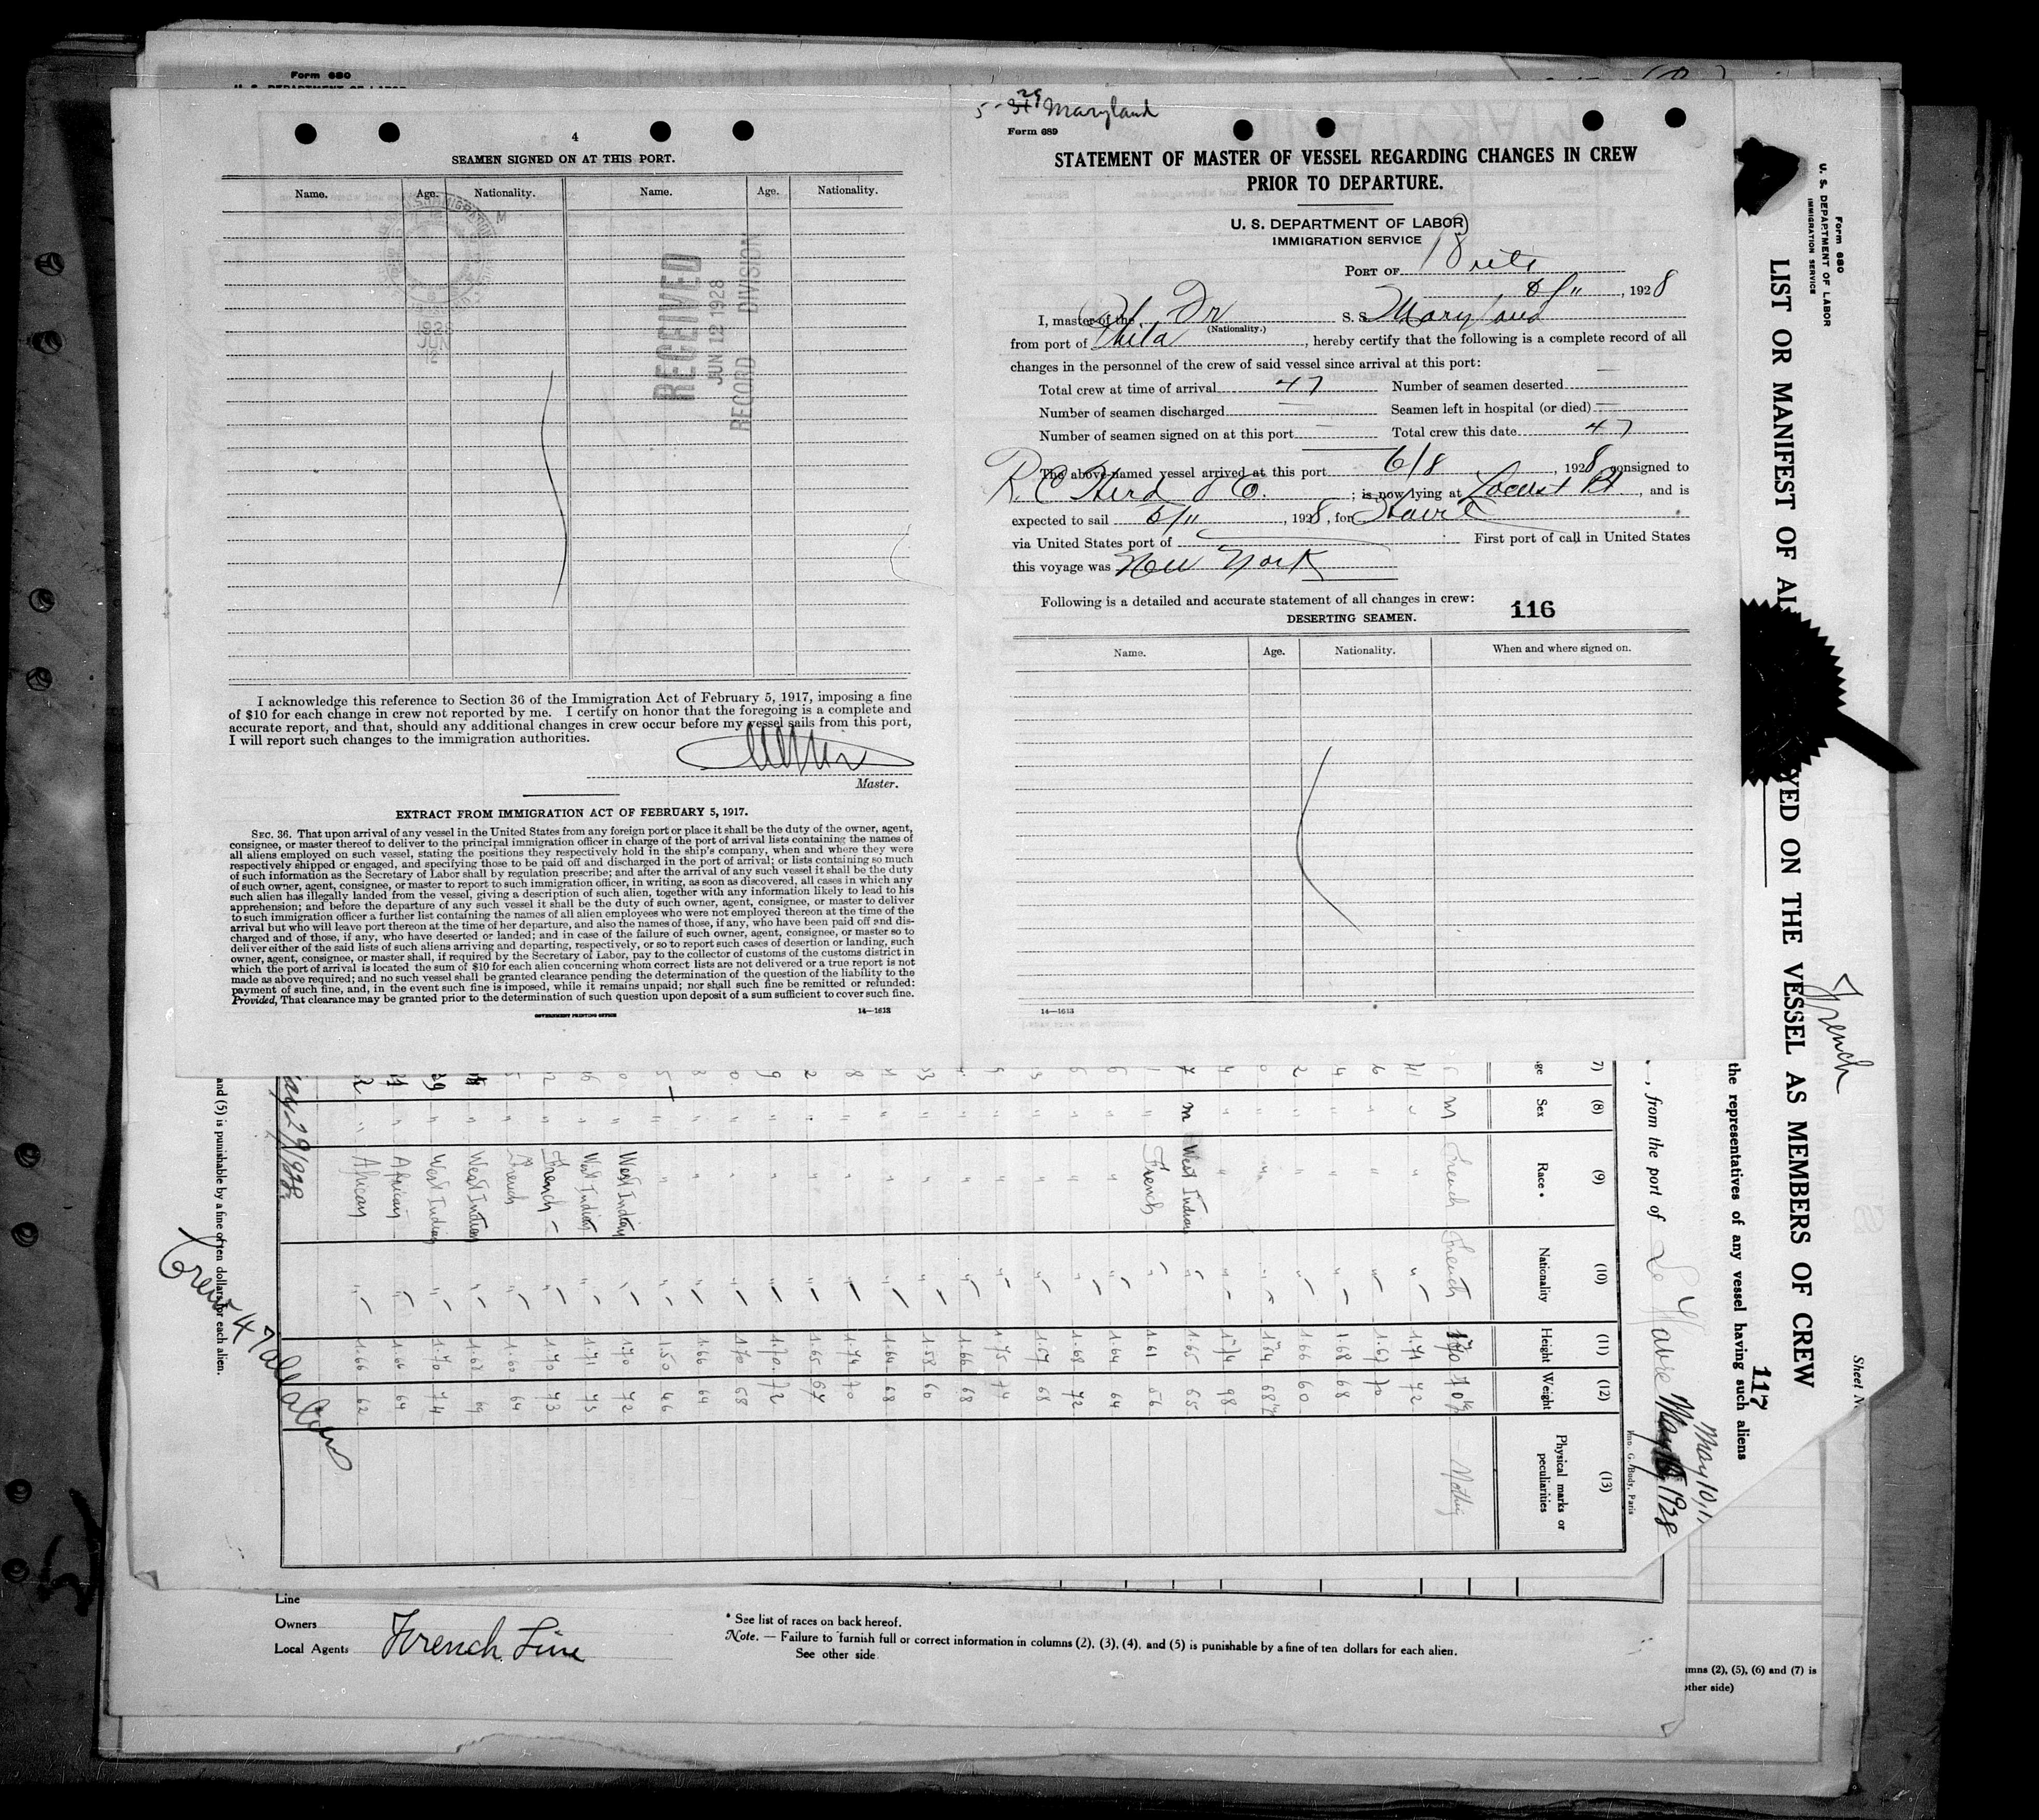 Form 680
4
SEAMEN SIGNED ON AT THIS PORT.
Name. Age. Nationality. Name. Age. Nationality.
RECEIVED
JUN 12 1928
RECORD DIVISION
1928
JUN
I acknowledge this reference to Section 36 of the Immigration Act of February 5, 1917, imposing a fine
of $10 for each change in crew not reported by me. I certify on honor that the foregoing is a complete and
accurate report, and that, should any additional changes in crew occur before my vessel sails from this port,
I will report such changes to the immigration authorities.
Master.
EXTRACT FROM IMMIGRATION ACT OF FEBRUARY 5, 1917.
SEC. 36. That upon arrival of any vessel in the United States from any foreign port or place it shall be the duty of the owner, agent,
consignee, or master thereof to deliver to the principal immigration officer in charge of the port of arrival lists containing the names of
all aliens employed on such vessel, stating the positions they respectively hold in the ship's company, when and where they were
respectively shipped or engaged, and specifying those to be paid off and discharged in the port of arrival; or lists containing so much
of such information as the Secretary of Labor shall by regulation prescribe; and after the arrival of any such vessel it shall be the duty
of such owner, agent, consignee, or master to report to such immigration officer, in writing, as soon as discovered, all cases in which any
such alien has illegally landed from the vessel, giving a description of such alien, together with any information likely to lead to his
apprehension; and before the departure of any such vessel it shall be the duty of such owner, agent, consignee, or master to deliver
to such immigration officer a further list containing the names of all alien employees who were not employed thereon at the time of the
arrival but who will leave port thereon at the time of her departure, and also the names of those, if any, who have been paid off and dis-
charged and of those, if any, who have deserted or landed; and in case of the failure of such owner, agent, consignee, or master so to
deliver either of the said lists of such aliens arriving and departing, respectively, or so to report such cases of desertion or landing, such
owner, agent, consignee, or master shall, if required by the Secretary of Labor, pay to the collector of customs of the customs district in
which the port of arrival is located the sum of $10 for each alien concerning whom correct lists are not delivered or a true report is not
made as above required; and no such vessel shall be granted clearance pending the determination of the question of the liability to the
payment of such fine, and, in the event such fine is imposed, while it remains unpaid; nor shall such fine be remitted or refunded:
Provided, That clearance may be granted prior to the determination of such question upon deposit of a sum sufficient to cover such fine.
GOVERNMENT PRINTING OFFICE 14—1613
5-29 Maryland
Form 689
STATEMENT OF MASTER OF VESSEL REGARDING CHANGES IN CREW
PRIOR TO DEPARTURE.
U. S. DEPARTMENT OF LABOR
IMMIGRATION SERVICE
PORT OF
6/11, 1928
I, master of the Fr (Nationality.) S. S. Maryland
from port of Phila, hereby certify that the following is a complete record of all
changes in the personnel of the crew of said vessel since arrival at this port:
Total crew at time of arrival 47 Number of seamen deserted —
Number of seamen discharged — Seamen left in hospital (or died) —
Number of seamen signed on at this port — Total crew this date 47
The above-named vessel arrived at this port 6/8, 1928, consigned to
R. C. Herd & Co.; is now lying at Locust St, and is
expected to sail 6/11, 1928, for Havre
via United States port of First port of call in United States
this voyage was New York
Following is a detailed and accurate statement of all changes in crew: 116
DESERTING SEAMEN.
Name. Age. Nationality. When and where signed on.
14—1613
Form 680
U. S. DEPARTMENT OF LABOR
IMMIGRATION SERVICE
LIST OR MANIFEST OF AL YED ON THE VESSEL AS MEMBERS OF CREW
French
Sheet N
the representatives of any vessel having such aliens
117
, from the port of Le Havre May 1928
May 10, 1
Imp. G. Budy, Paris
(7) (8) (9) (10) (11) (12) (13)
ge Sex Race * Nationality Height Weight Physical marks or peculiarities
m French French 1.70 70 kg Nothing
" " " 1.71 72
" " " 1.67 70
" " " 1.68 68
" " " 1.66 60
" " " 1.64 68
" " " 1.74 98
m West Indian " 1.65 65
" French " 1.61 56
" " " 1.64 64
" " " 1.68 72
" " " 1.67 68
" " " 1.75 74
" " " 1.66 68
" " " 1.58 60
" " " 1.64 68
" " " 1.74 70
" " " 1.65 67
" " " 1.70 72
" " " 1.70 68
" " " 1.66 64
" " " 1.50 46
" West Indian " 1.70 72
" West Indian " 1.71 75
" French " 1.70 73
" French " 1.60 64
" West Indian " 1.68 69
29 " West Indian " 1.70 74
" African " 1.66 64
" African " 1.66 62
May 29/1928
and (5) is punishable by a fine of ten dollars for each alien.
Crew 47 all alien
Line
Owners
Local Agents French Line
* See list of races on back hereof.
Note. — Failure to furnish full or correct information in columns (2), (3), (4), and (5) is punishable by a fine of ten dollars for each alien.
See other side
mns (2), (5), (6) and (7) is
other side)